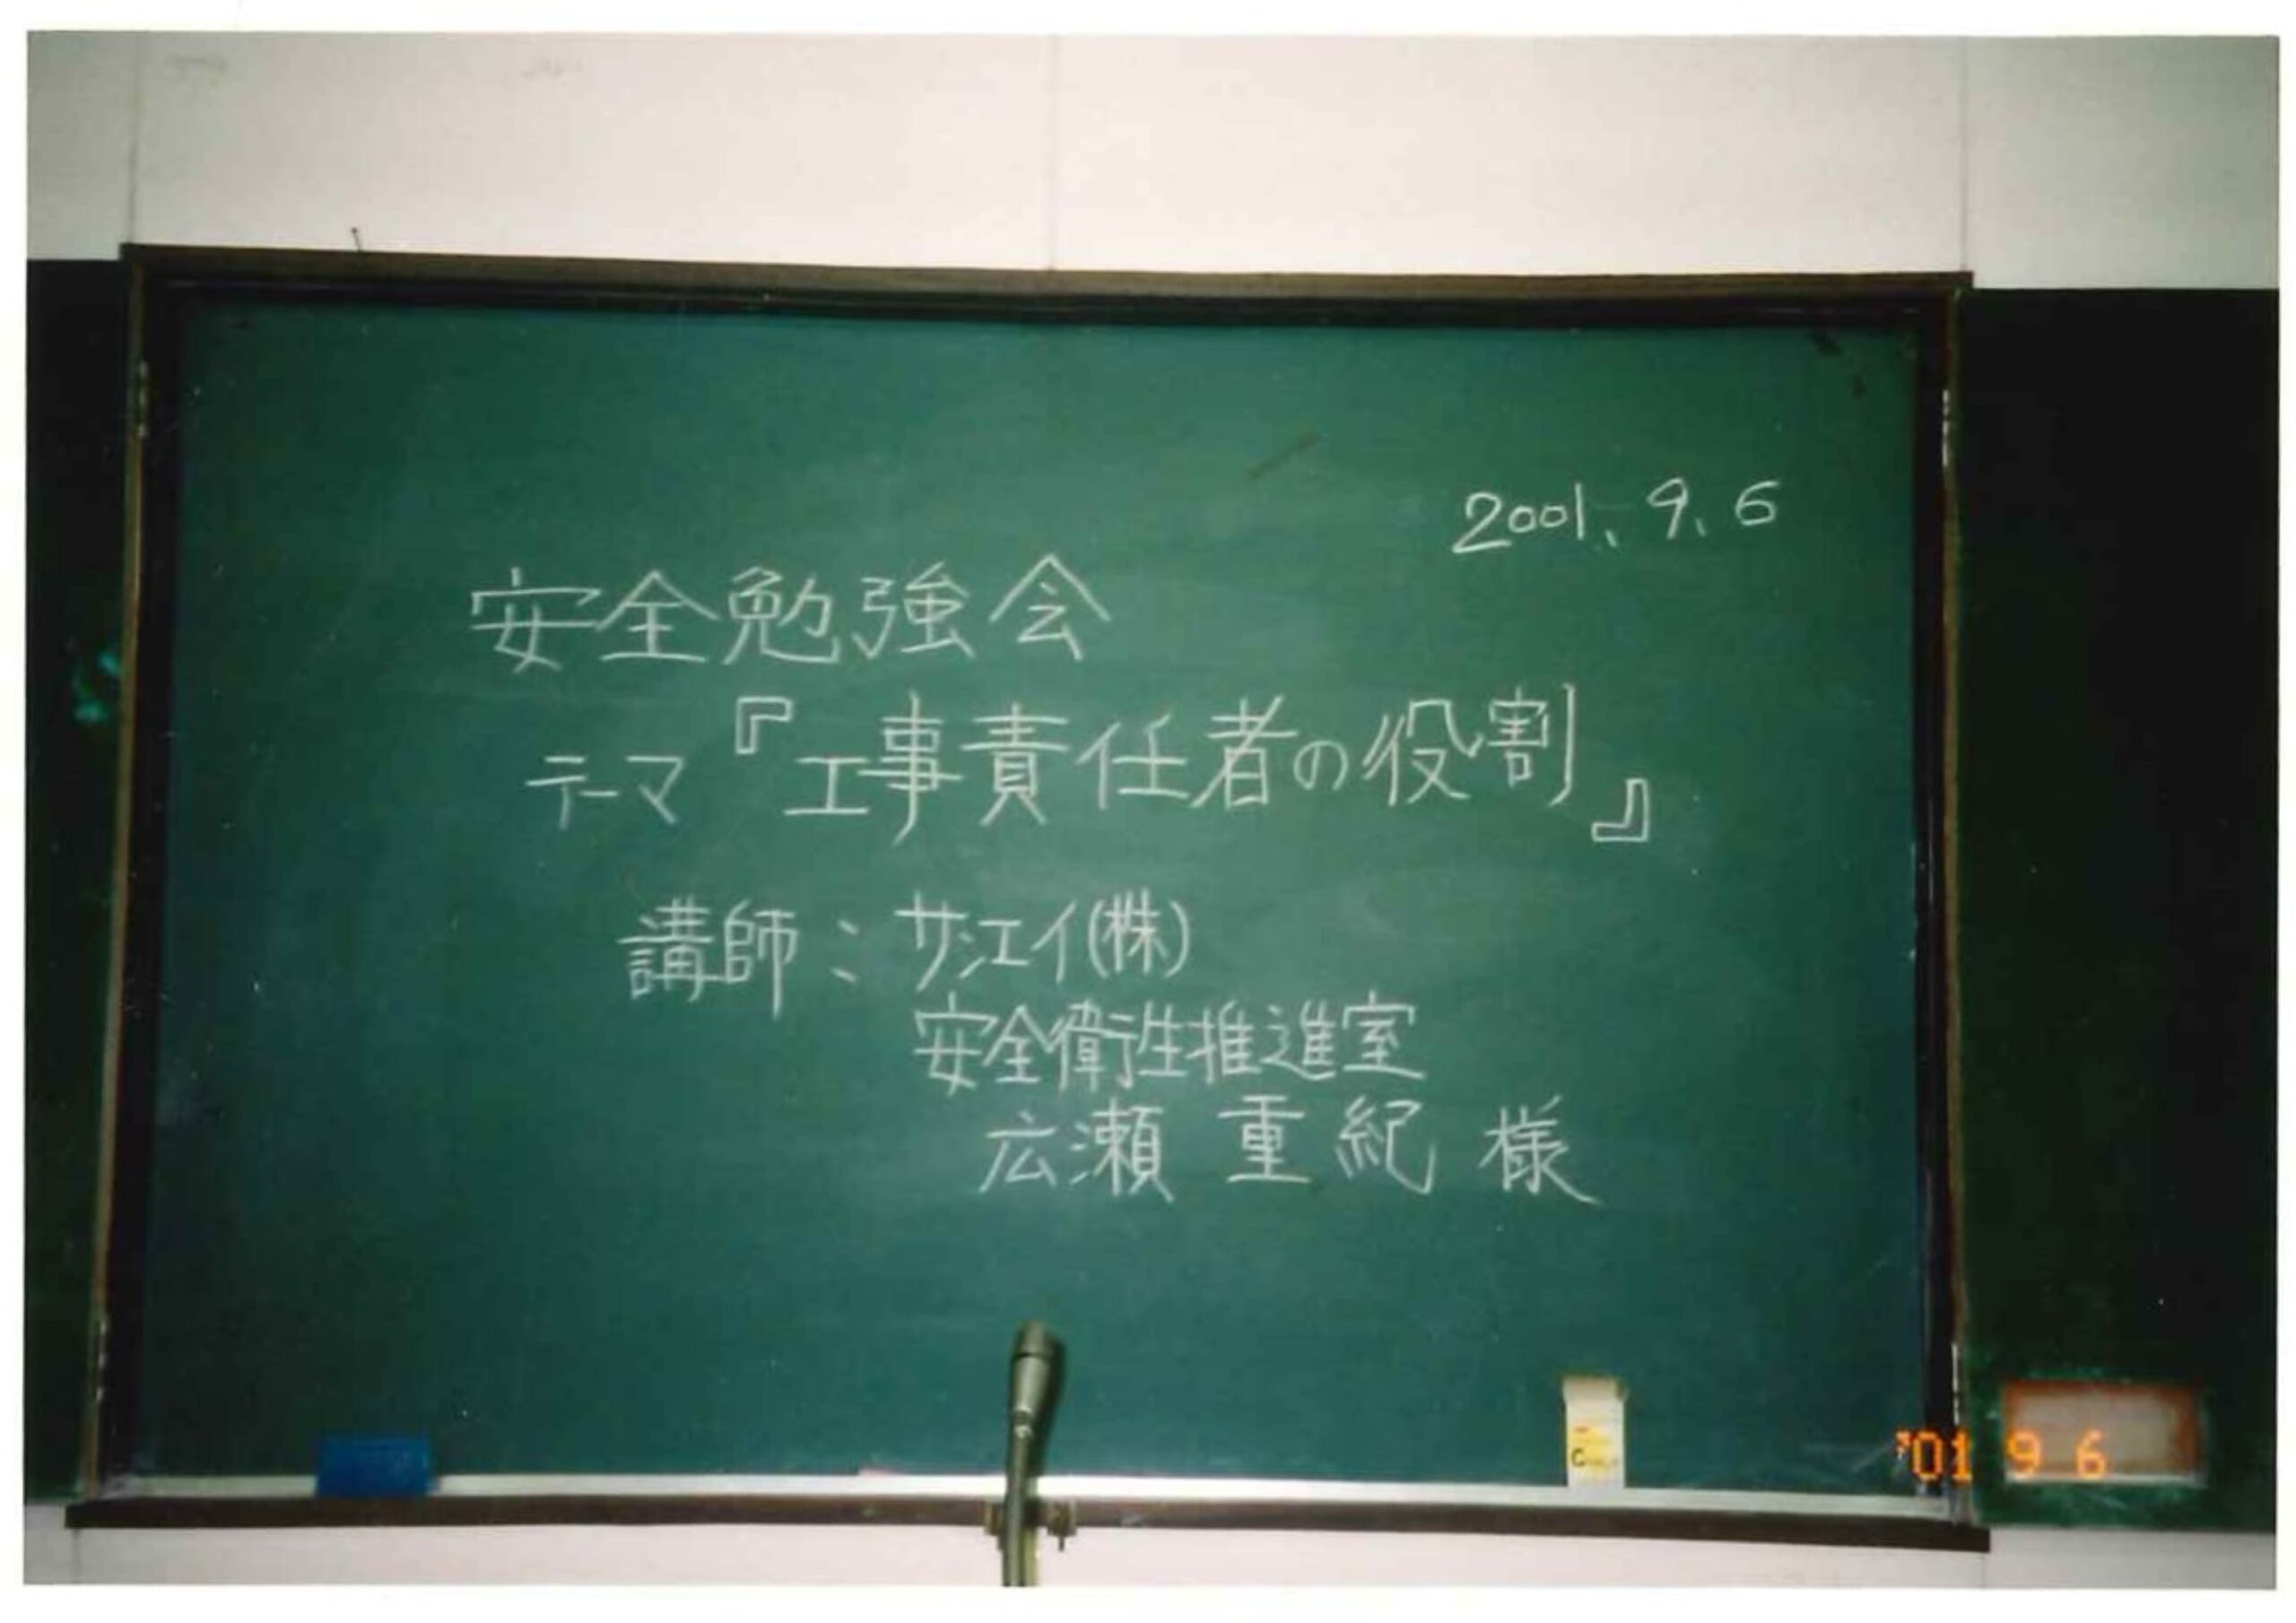 2001、9、6
安全勉強会
テーマ『工事責任者の役割』
講師：サンエイ(株)
安全衛生推進室
広瀬 重紀 様
'01 9 6